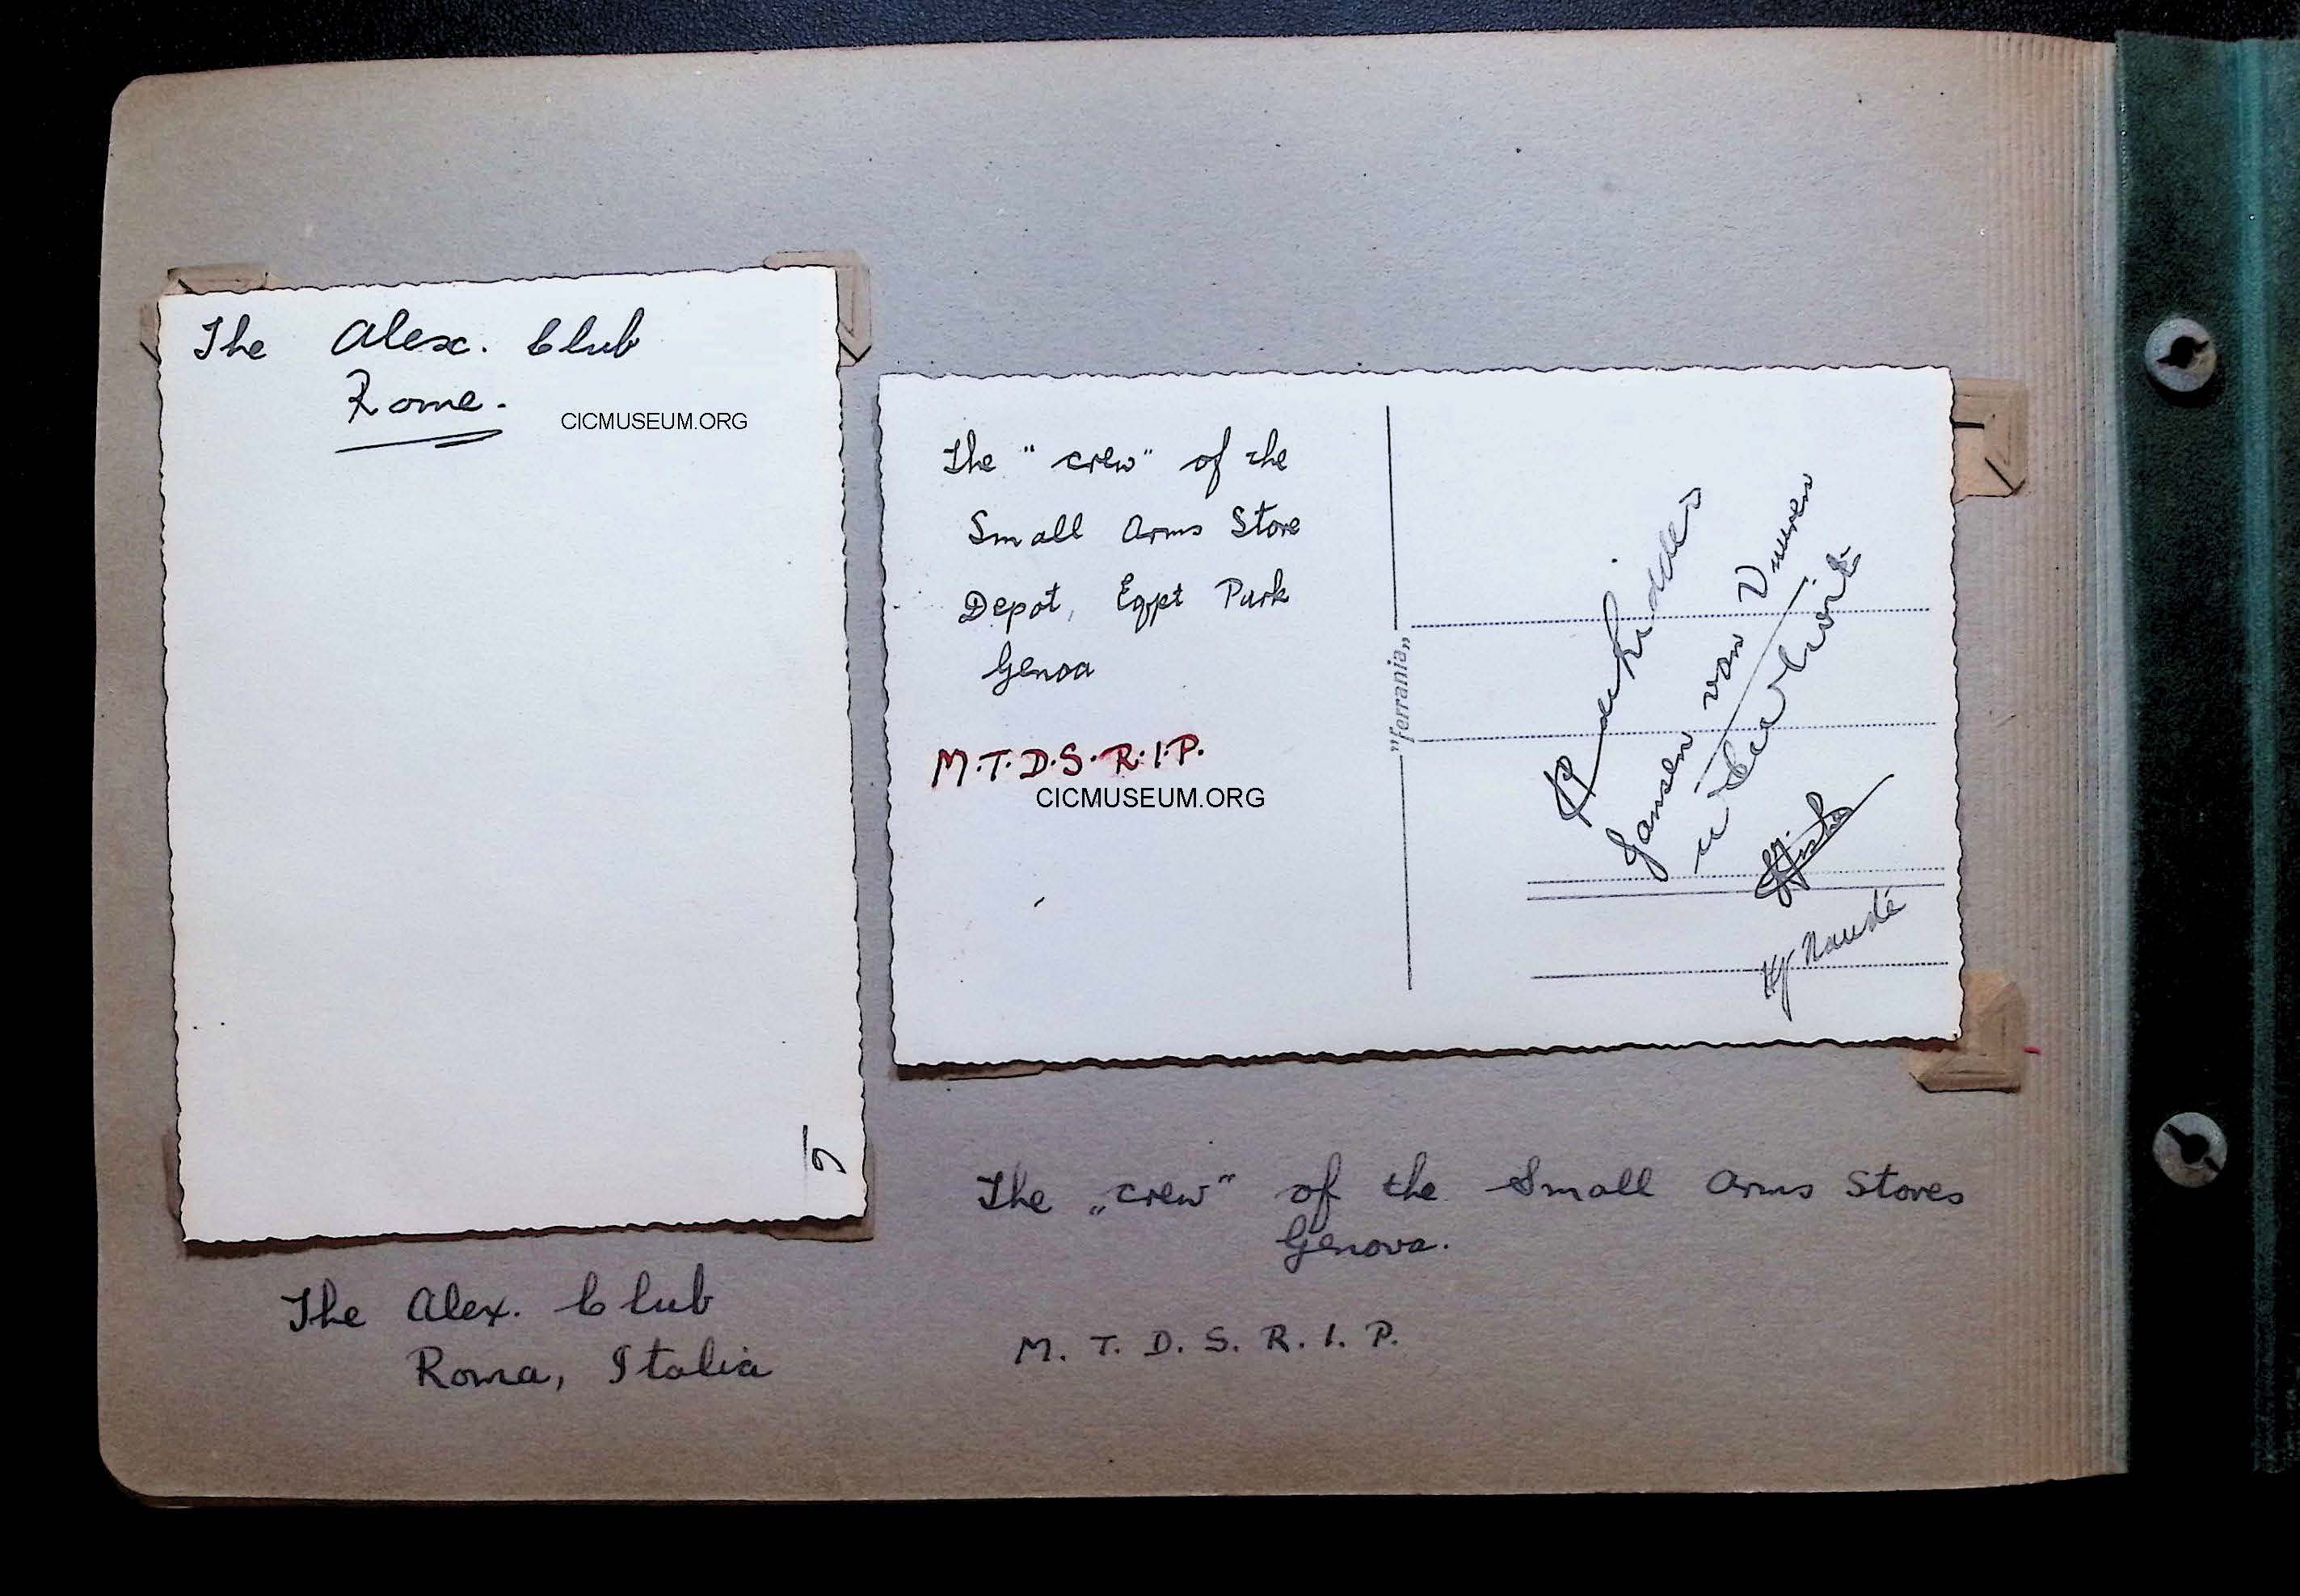 The Alex. Club
Rome.
CICMUSEUM.ORG
The "crew" of the
Small Arms Store
Depot, Eqpt Park
Genoa
M.T.D.S.R.I.P.
CICMUSEUM.ORG
"Ferrania"
Jansen van Vuuren
Naudé
The „crew" of the Small Arms Stores
Genova.
M. T. D. S. R. I. P.
The Alex. Club
Roma, Italia